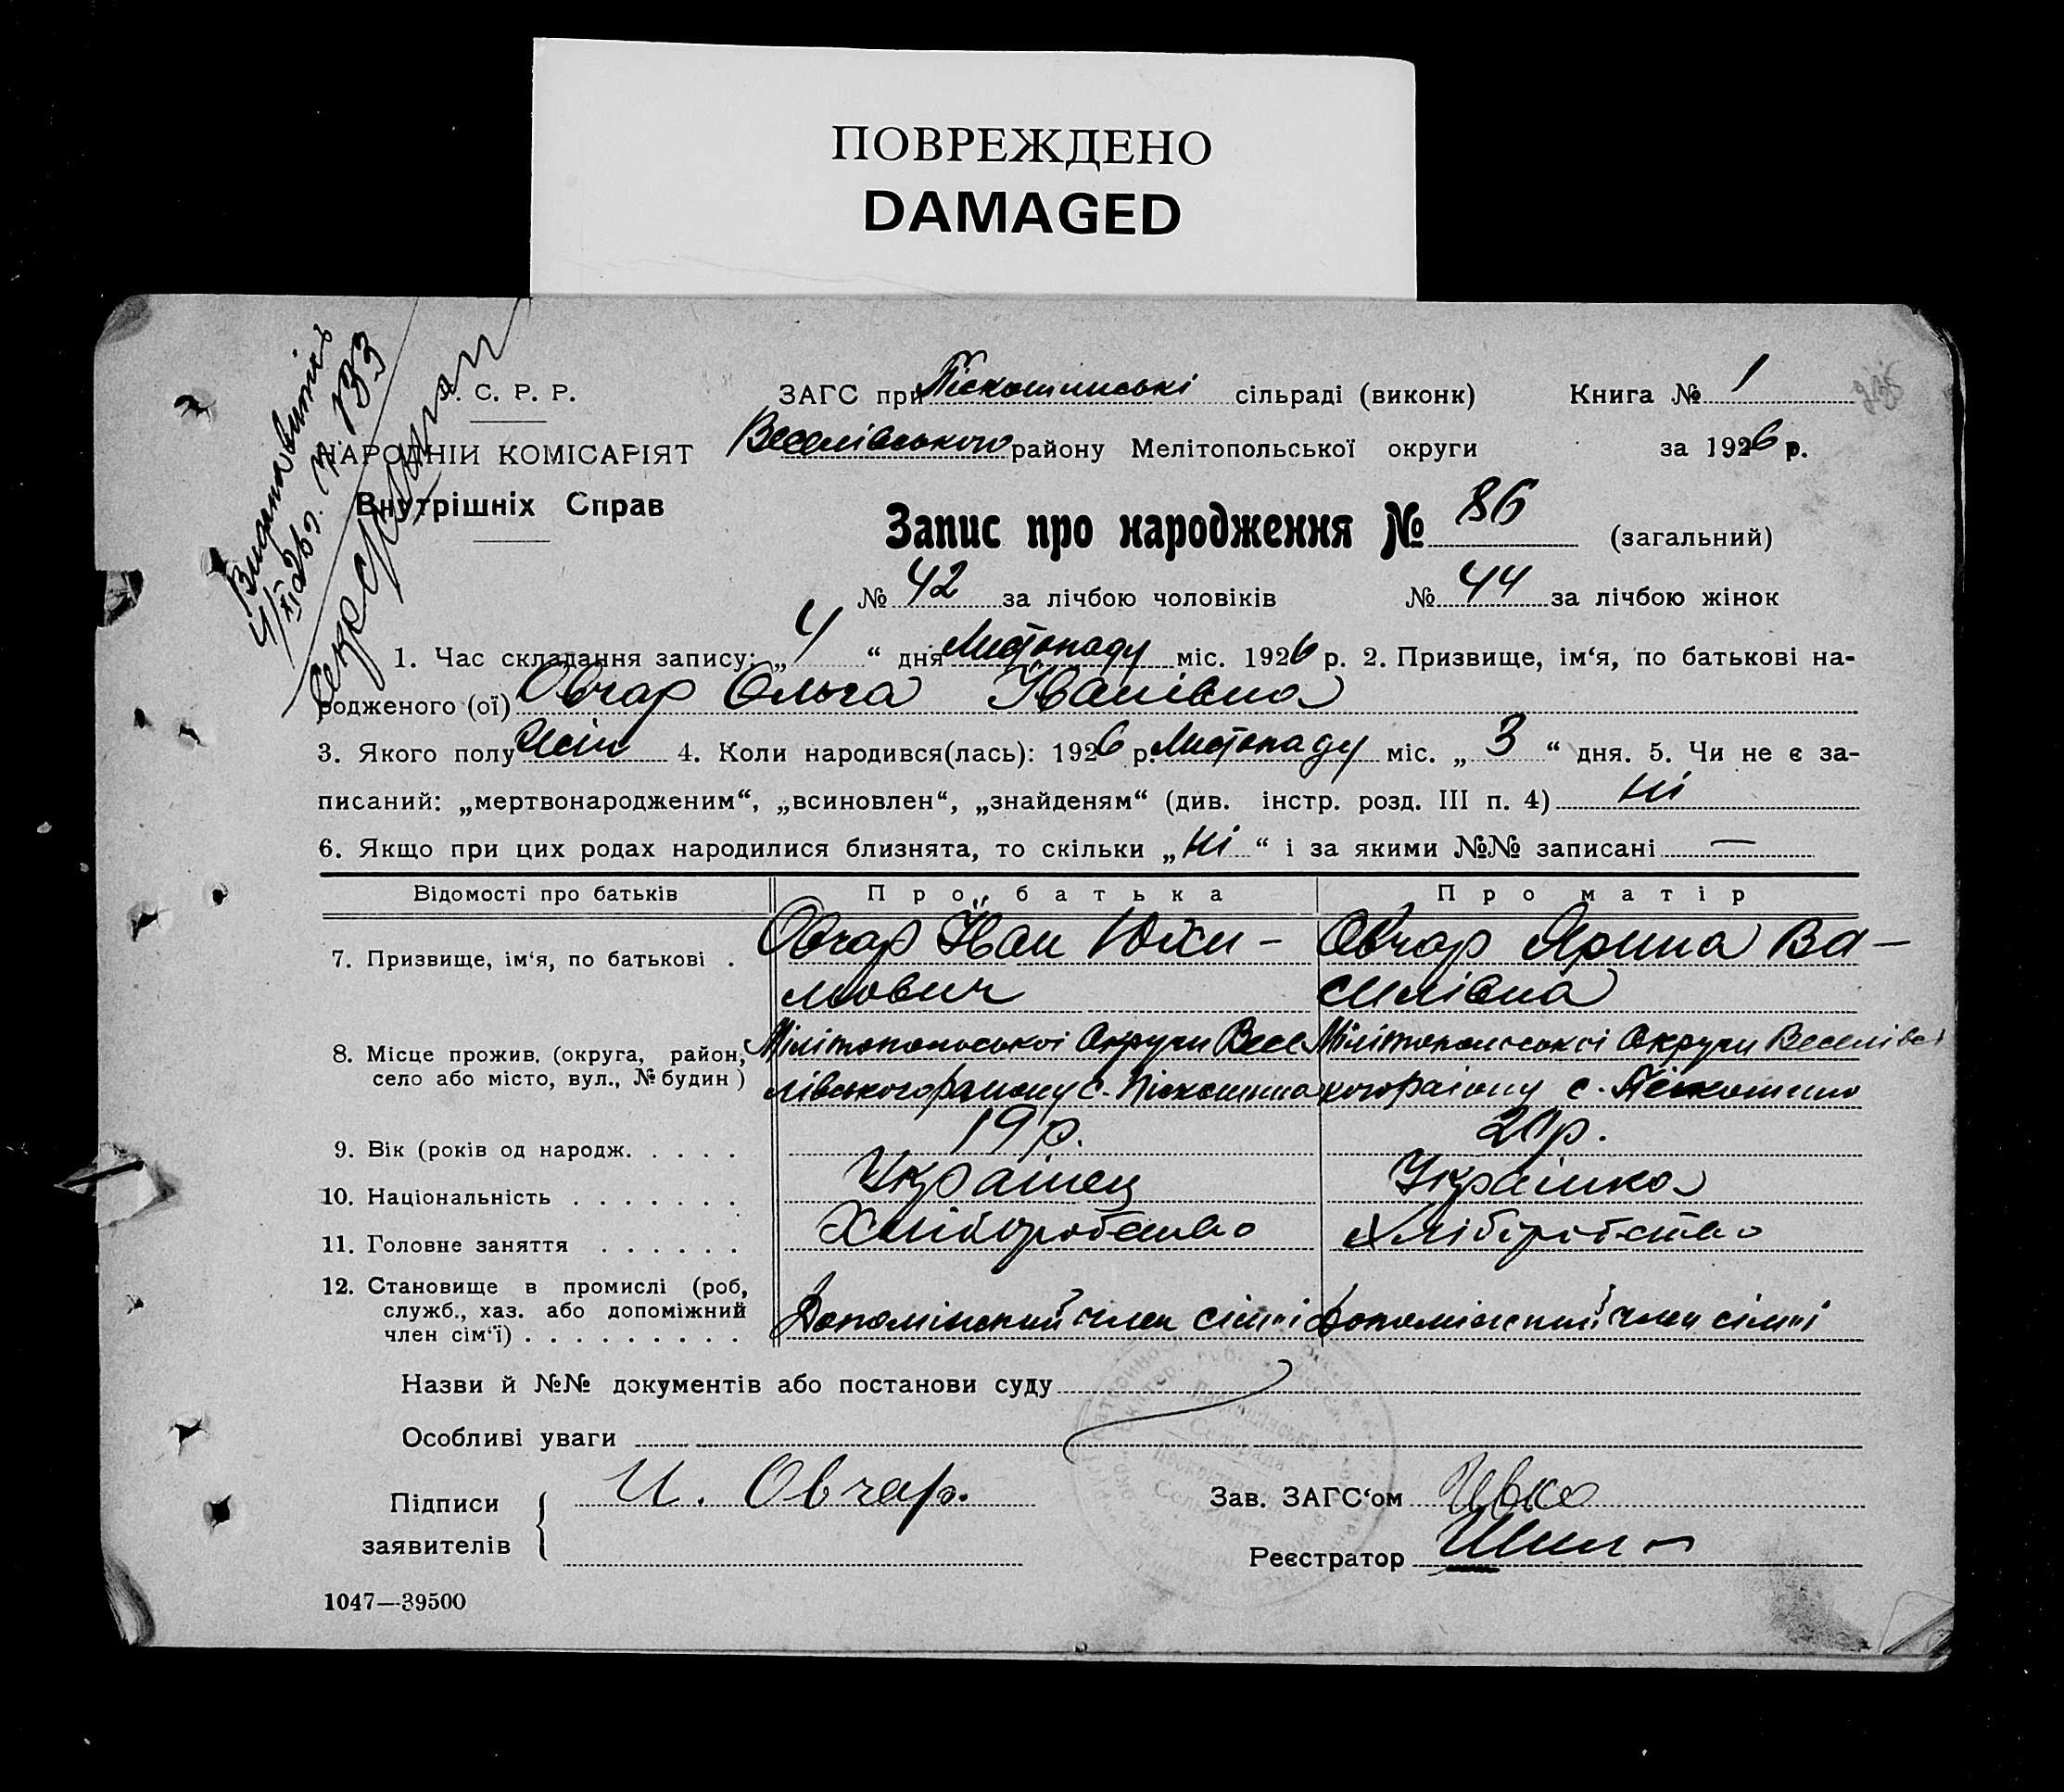 ПОВРЕЖДЕНО
DAMAGED
С. Р. Р.
НАРОДНІЙ КОМІСАРІЯТ
Внутрішніх Справ
ЗАГС при Піскошинські сільраді (виконк)
Книга № 1
Веселівського району Мелітопольської округи
за 1926 р.
Запис про народження № 86 (загальний)
№ 42 за лічбою чоловіків № 44 за лічбою жінок
1. Час складання запису: „4“ дня Листопаду міс. 1926 р. 2. Призвище, ім‘я, по батькові на-
родженого (ої) Овчар Ольга Іванівна
3. Якого полу Жін 4. Коли народився(лась): 1926 р. Листопаду міс. „3“ дня. 5. Чи не є за-
писаний: „мертвонародженим“, „всиновлен“, „знайденям“ (див. інстр. розд. III п. 4) Ні
6. Якщо при цих родах народилися близнята, то скільки „Ні“ і за якими №№ записані —
Відомості про батьків Про батька Про матір
7. Призвище, ім‘я, по батькові . Овчар Іван Юхи- Овчар Ярина Ва-
мович силівна
8. Місце прожив. (округа, район, Мілітопольської Округи Весе Мілітопольської Округи Веселівсь
село або місто, вул., № будин) лівського району с. Піскошина кого району с. Піскошино
9. Вік (років од народж. . . . . 19 р. 20 р.
10. Національність . . . . . . . Українец Українка
11. Головне заняття . . . . . . Хліборобство Хліборобство
12. Становище в промислі (роб,
служб., хаз. або допоміжний
член сім‘ї) . . . . . . . . . Допоміжний член сімї Допоміжний член сімї
Назви й №№ документів або постанови суду
Особливі уваги
Підписи
заявителів
И. Овчар.
Зав. ЗАГС‘ом
Реєстратор
1047—39500